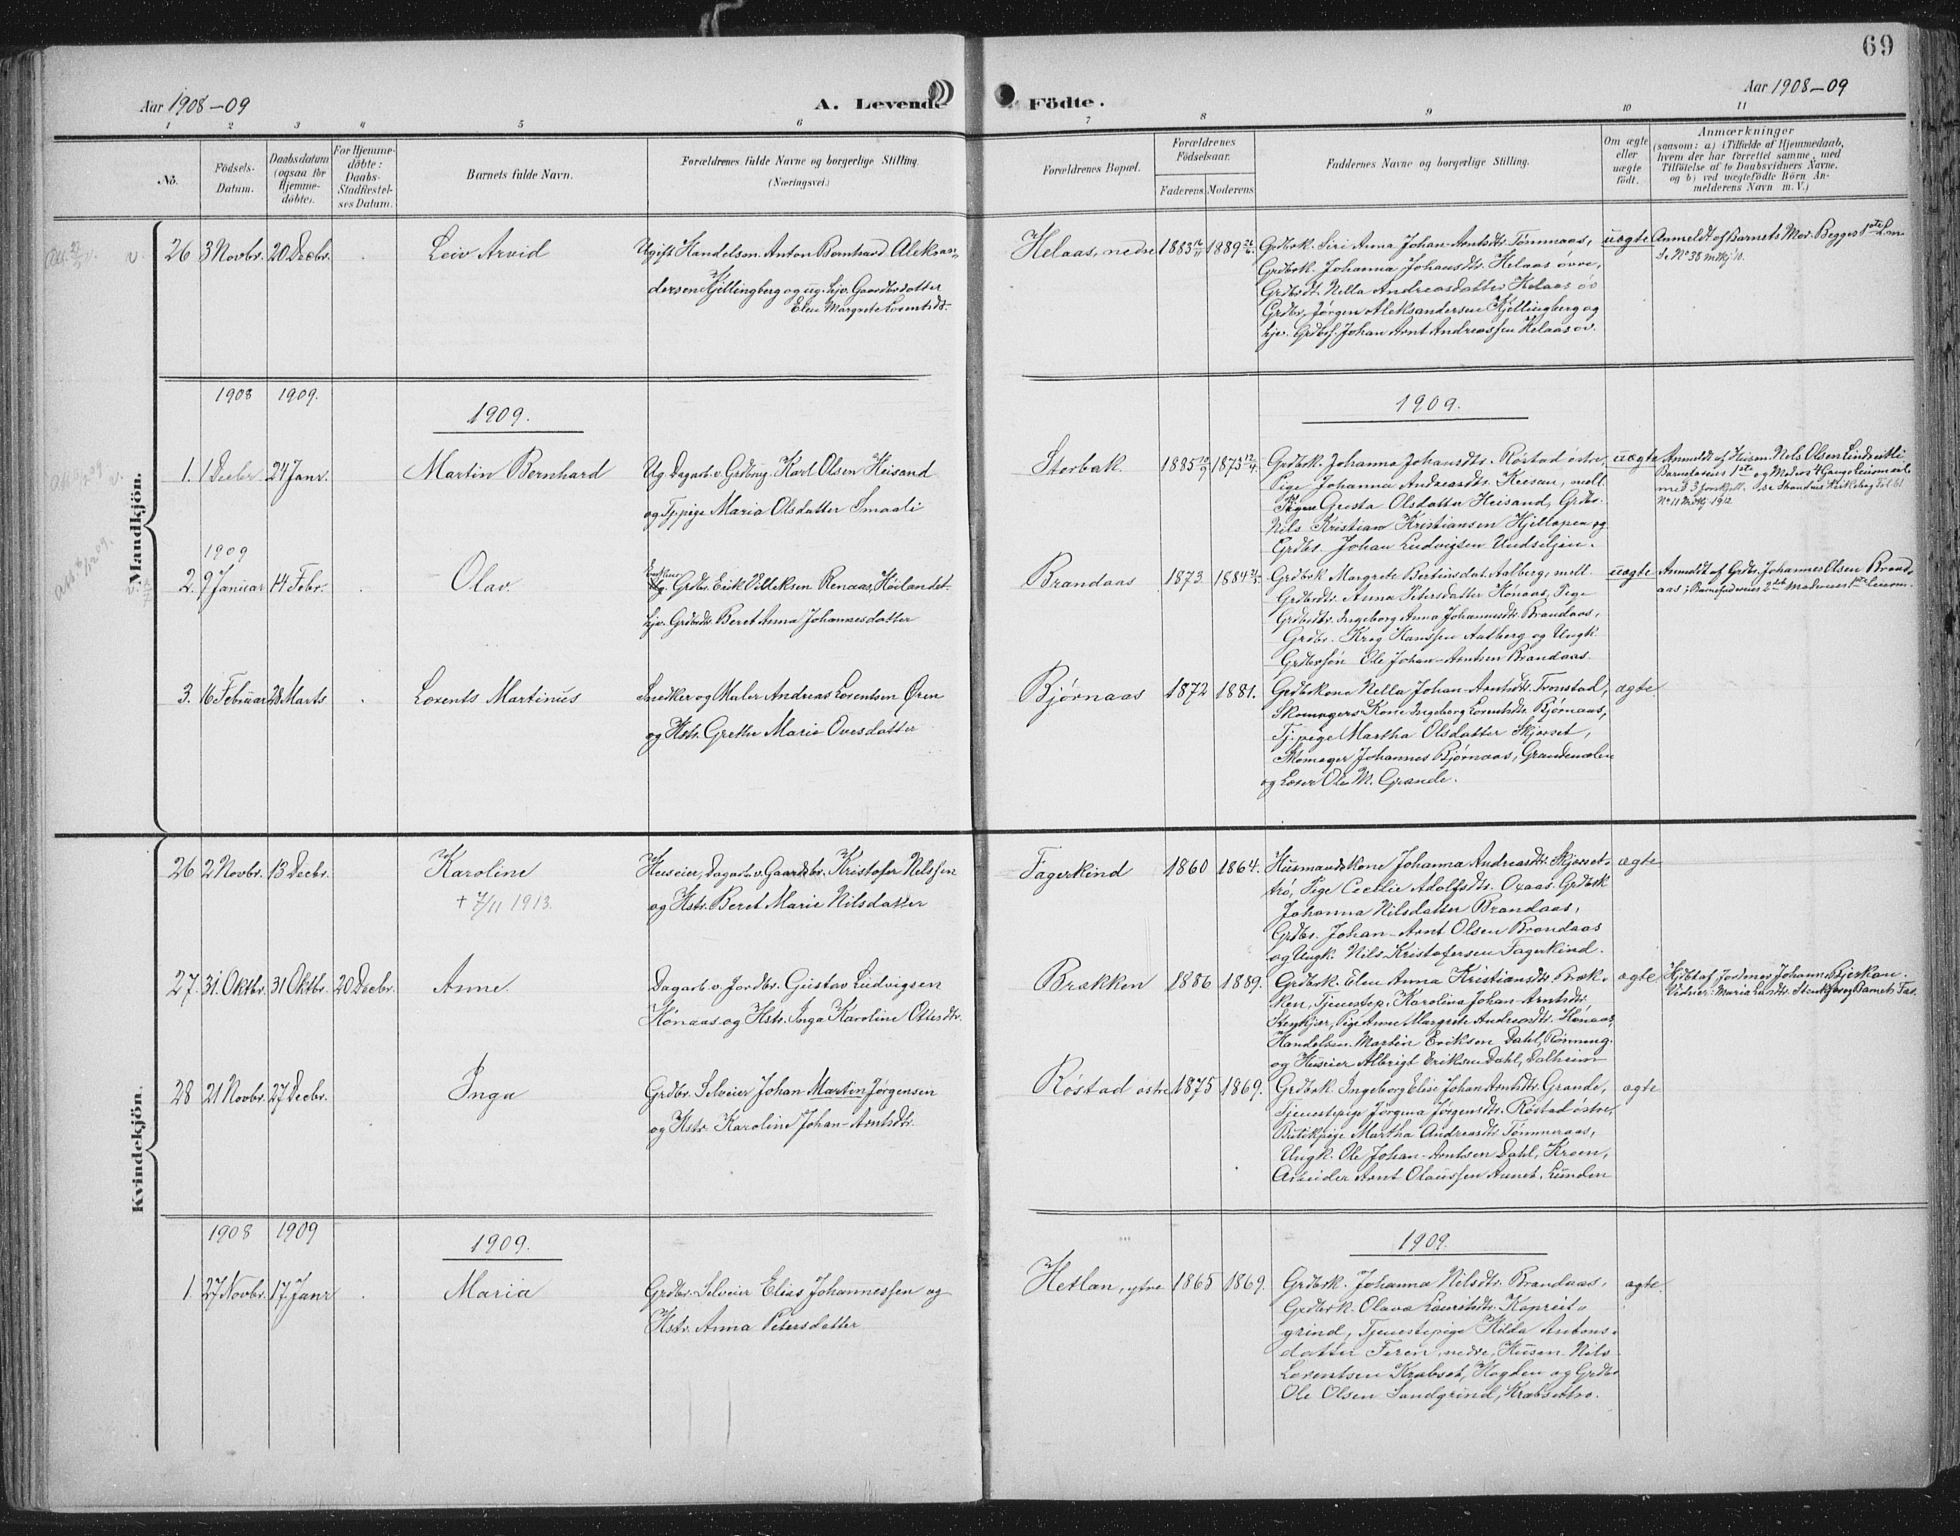 69
Aar 1908-09
A. Levende
Födte.
Aar 1908-09
1 2 3 4 5 6 7 8 9 10 11
No.
Födsels-
Datum.
Daabsdatum
(ogsaa for
Hjemme-
döbte).
For Hjemme-
döbte:
Daabs-
Stadfæstel-
ses Datum.
Barnets fulde Navn.
Forældrenes fulde Navne og borgerlige Stilling.
(Næringsvei.)
Forældrenes Bopæl.
Forældrenes
Födselsaar.
Faderens. Moderens.
Faddernes Navne og borgerlige Stilling.
Om ægte
eller
uægte
födt.
Anmærkninger
(saasom: a) i Tilfælde af Hjemmedaab,
hvem der har forrettet samme, med
Tilföielse af to Daabsvidners Navne,
og b) ved uægtefödte Börn An-
melderens Navn m. V.)
Mandkjön.
26 3 Novbr. 20 Decbr. Leiv Arvid
Ugift Handelsm. Anton Bernhard Aleksan-
dersen Kjellingberg og ug. hjv. Gaardbrdatter
Elen Margrete Lorentsdt.
Helaas, nedre 1883 1889
Grdbrk. Siri Anna Johan-Arntsdt. Tømmaas,
Grdbrk. Johanna Johansdt. Helaas øvre,
Grdbrdt. Nella Andreasdatter Helaas øv
Grdbr. Jørgen Aleksandersen Kjellingberg og
hjv. Grdbrs. Johan Arnt Andreassen Helaas øv.
uægte
Anmeldt af Barnets Mor. Begges 1ste Lm.
Se No 38
1908 1909.
1909.
1909.
1. 1 Decbr 24 Janr. Martin Bernhard
Ug. Dagarb. v. Grdbrug. Karl Olsen Heisand
og Tj.pige Maria Olsdatter Smaali
Storbak 1885 1873
Grdbrk. Johanna Johansdt. Røstad østre,
Pige Johanna Andreasdt. Heesen, mell.
Pigen Gusta Olsdatter Heisand, Grdbr.
Nils Kristian Kristiansen Hjellopen og
Grdbr. Johan Ludvigsen Undseljen.
uægte
Anmeldt af Husm. Nels Olsen Lindsetli
Barnefaderens 1ste og Moders 4 Gangs Leiermaal
med 3 forskjell.
1909
2. 9 Januar 14 Febr. Olav.
Enkem.
Ug. Grdbr. Erik Villeksen Renaas, Hølandet
hjv. Grdbrdt. Beret Anna Johannesdatter
Brandaas 1873 1884
Grdbrk. Margrete Bertinsdat. Aalberg, mell.
Grdbrdtr. Anna Petersdatter Hønaas, Pige
Grdbrdtr. Ingeborg Anna Johannesdt. Brandaas,
Grdbr. Krog Hanssen Aalberg og Ungk.
Grdbrsøn Ole Johan-Arntsen Brandaas.
uægte
Anmeldt af Grdbr. Johannes Olsen Brand-
aas; Barnefaderens 2det Moderens 1ste Leierm.
3. 16 Februar 28 Marts Lorents Martinus
Snedker og Maler Andreas Lorentsen Øren
og Hstr. Grethe Marie Ovesdatter
Bjørnaas 1872 1881.
Grdbrkone Nella Johan-Arntsdt. Tronstad,
Skomagers Kone Ingeborg Lorentsdt. Bjørnaas,
Tj.pige Martha Olsdatter Skjerset,
Skomager Johannes Bjørnaas, Grandemælen
og Løser Ole M. Grande.
ægte
Kvindekjön.
26 2 Novbr. 13 Decbr. Karoline
+ 7/11 1913.
Huseier, Dagarb. v. Gaardbr. Kristofer Nilssen
og Hstr. Beret Marie Nilsdatter
Fagerkind 1860 1864.
Husmandskone Johanna Andreasdt. Skjerset-
trø, Pige Cecilie Adolfsdt. Oxaas. Grdbrk
Johanna Nilsdatter Brandaas,
Grdbr. Johan-Arnt Olsen Brandaas
og Ungk. Nils Kristofersen Fagerkind.
ægte
27. 31. Oktbr. 31 Oktbr. 20 Decbr. Anne.
Dagarb. v. Jordbr. Gustav Ludvigsen
Hønaas og Hstr. Inga Karoline Ottesdtr.
Brækken 1886 1889.
Grdbrk. Elen Anna Kristiansdt. Bræk-
ken, Tjenestep. Karolina Johan-Arntsdtr.
Stenkjær, Pige Anne Margrete Andreasdt. Hønaas,
Handelsm. Martin Eriksen Dahl, Rønning.
og Huseier Albrigt Eriksen Dahl, Dalheim
ægte
Hjdbt af Jordmor Johanne Bjerkan.
Vidner: Maria Lundst. Stenkjær og Barnets Far.
28 21 Novbr. 27 Decbr. Inga
Grdbr. Selveier Johan Martin Jørgensen
og Hstr. Karoline Johan-Arntsdtr.
Røstad østre 1875 1869.
Grdbrk. Ingeborg Elise Johan Arntsdtr. Grande,
Tjenestepige Jørgina Jørgensdtr. Røstad østre,
Butikpige Martha Andreasdtr. Tømmeraas,
Ungk. Ole Johan-Arntsen Dahl, Kroen,
Arbeider Arnt Olaussen Aunet. Lunden
ægte
1908 1909
1909.
1909.
1. 27 Novbr. 17 Janr Maria
Grdbr. Selveier Elias Johannessen og
Hstr. Anna Petersdatter
Hetlan, ytre 1865 1869.
Grdbrk. Johanna Nilsdtr. Brandaas,
Grdbrk. Olava Lauritsdtr. Kapreit-
grind, Tjenestepige Hilda Antons-
datter Feren, nedre, Husm. Nils
Lorentsen Krabset, Hogden og Grdbr
Ole Olsen Sandgrind, Krabsettrø.
ægte.